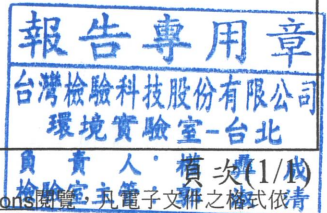 報告專用章
台灣檢驗科技股份有限公司
環境實驗室-台北
負責人:
頁次(1/1)
檢驗室主管
ons閱覽,凡電子文件之格式依